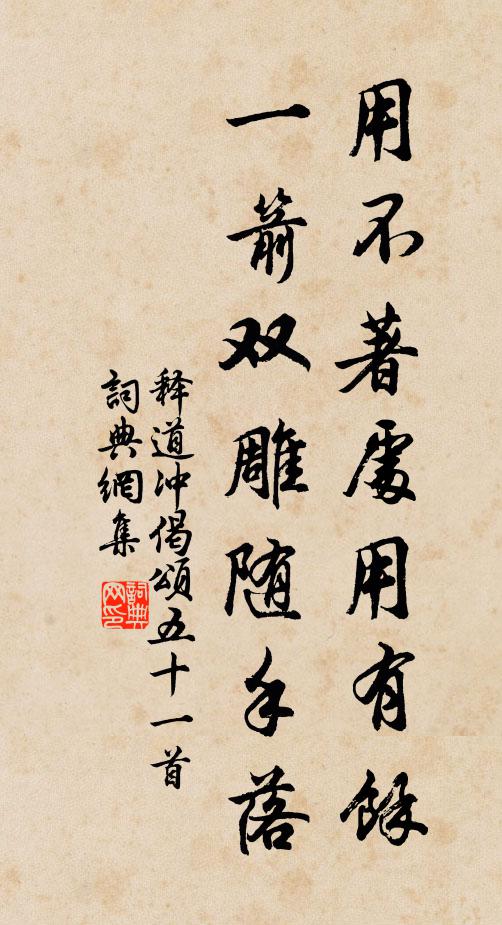 用不著處用有餘
一箭双雕随手落
释道冲偈頌五十一首
詞典網集
詞典
网印